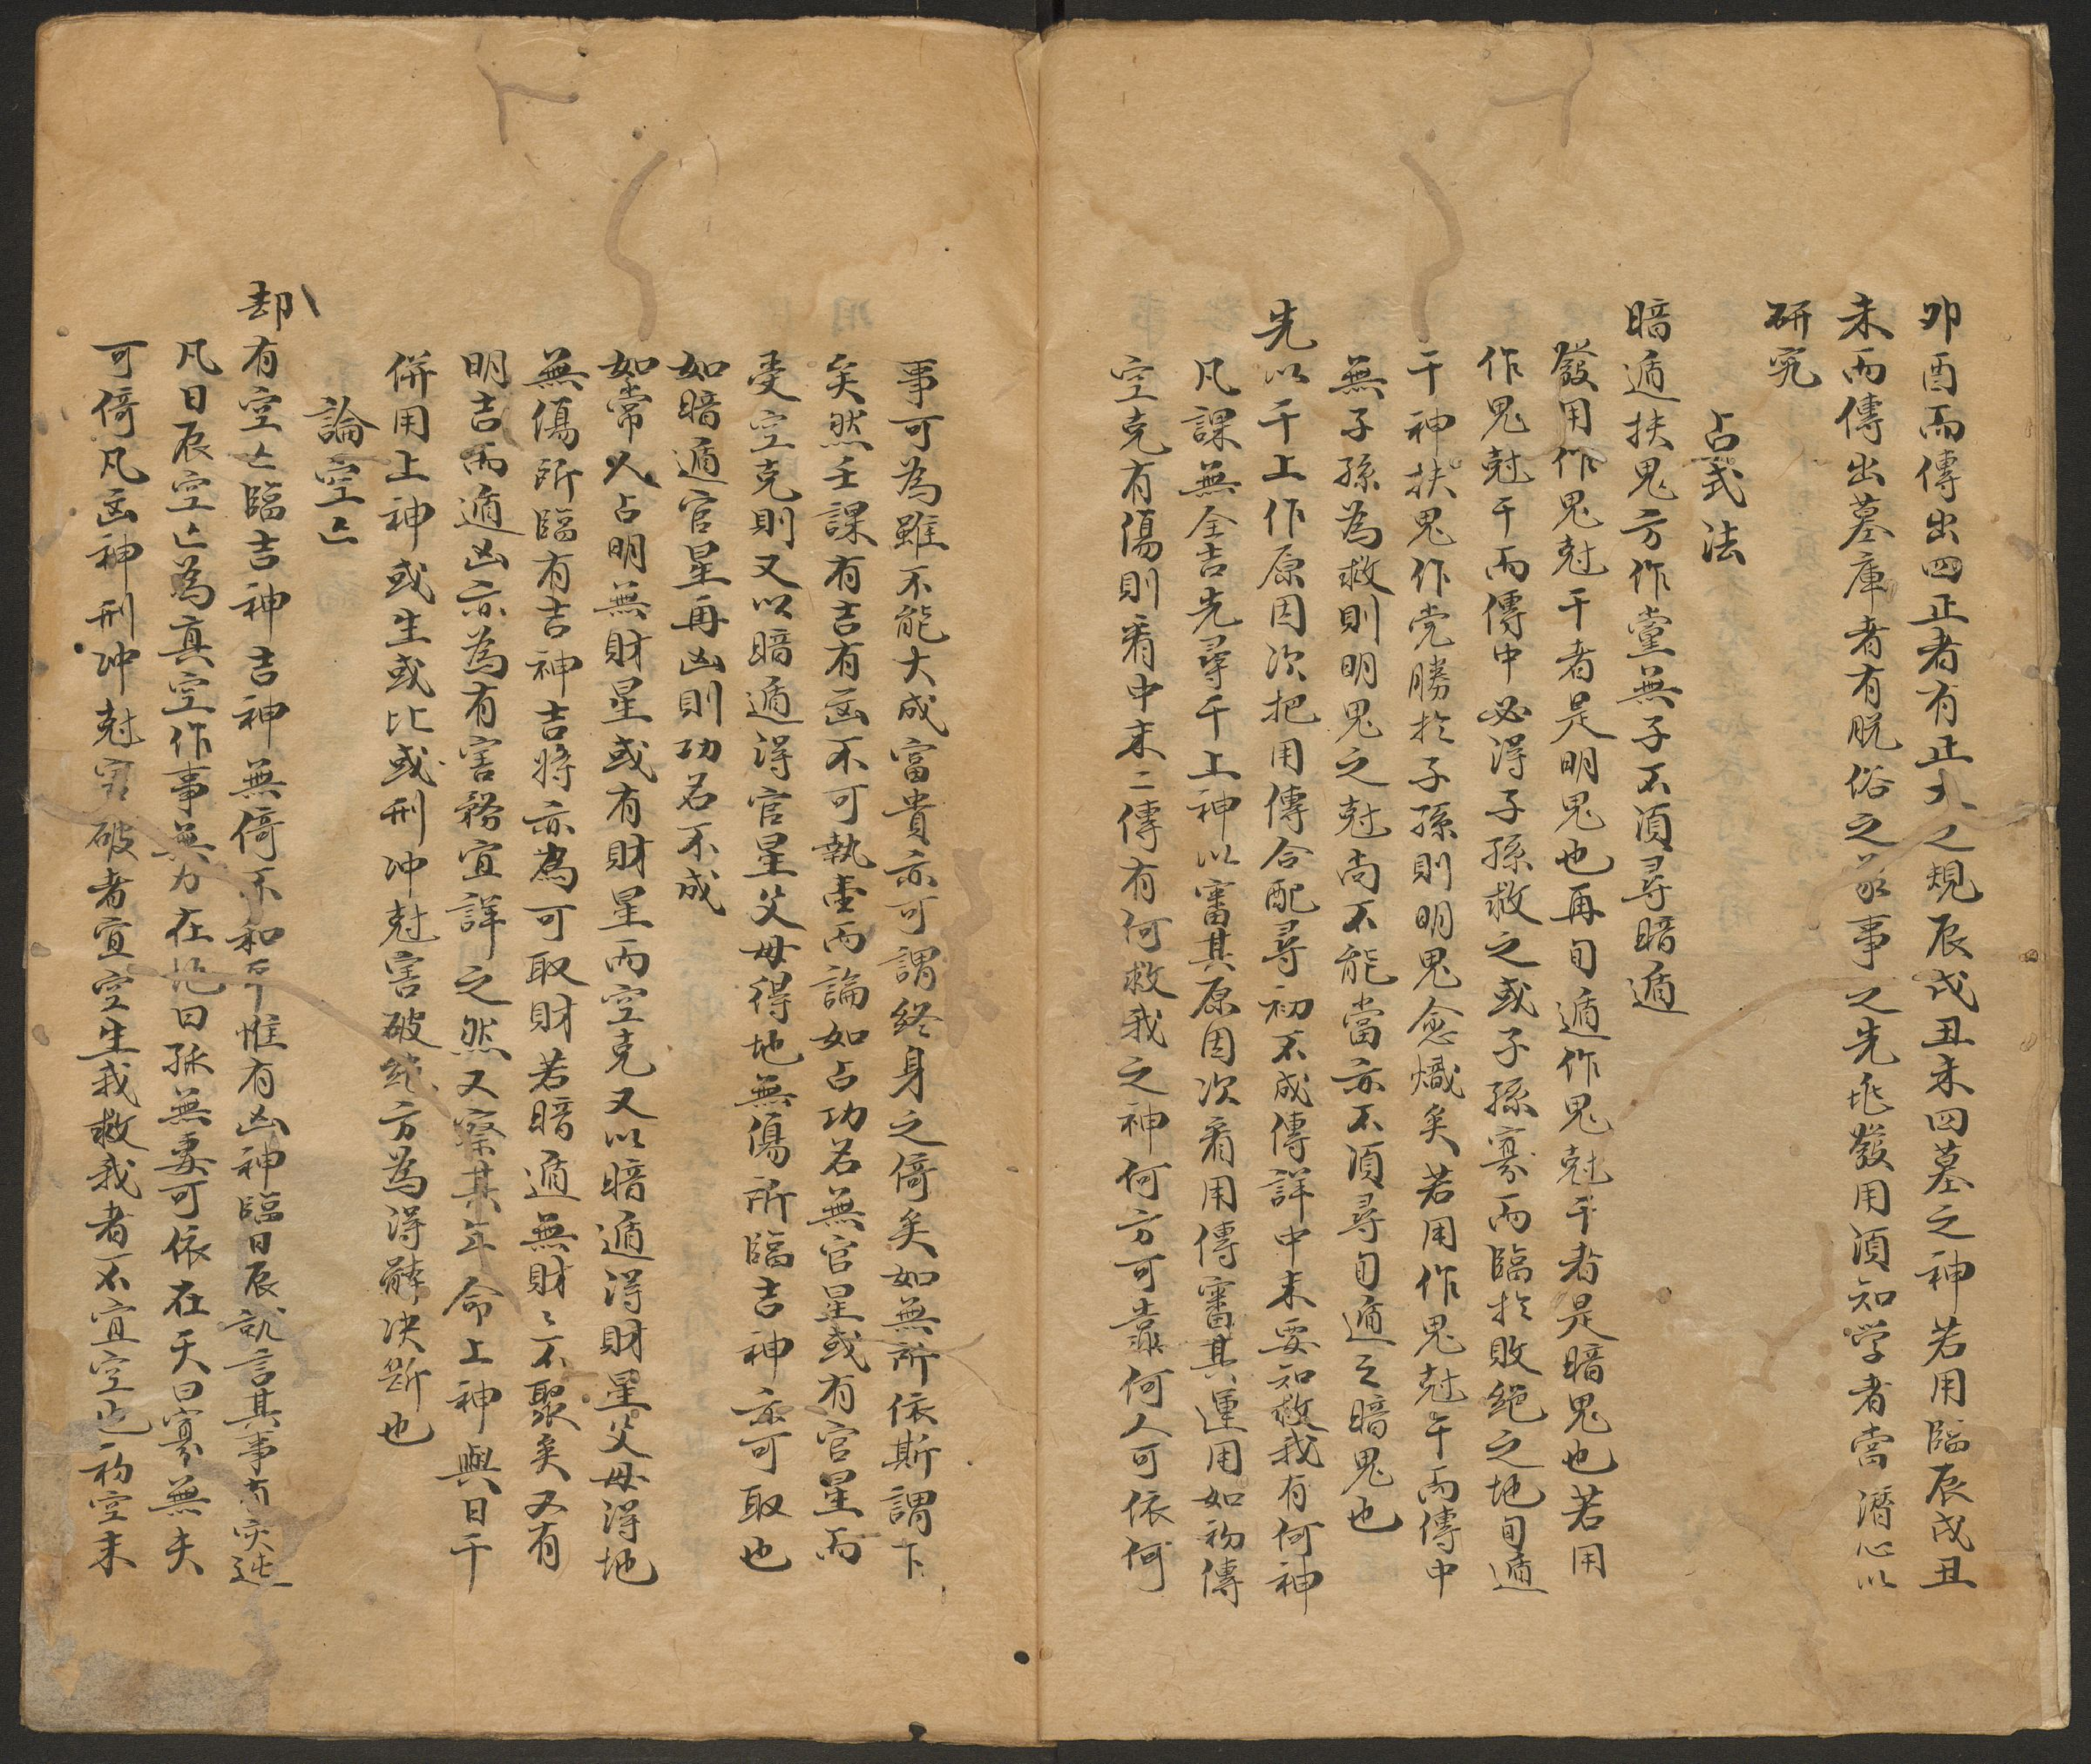 卯酉而傳出四正者有正大之規辰戌丑未四墓之神若用臨辰戌丑
未而傳出墓庫者有脱俗之象事之先兆發用須知学者當潛心以
研究
占式法
暗遁扶鬼方作黨無子不須尋暗遁
發用作鬼尅干者是明鬼也再旬遁作鬼尅干者是暗鬼也若用
作鬼尅干而傳中必得子孫救之或子孫寡而臨於敗絕之地旬遁
干神扶鬼作党勝於子孫則明鬼愈熾矣若用作鬼尅干而傳中
無子孫為救則明鬼之尅尚不能當亦不須尋旬遁之暗鬼也
先以干上作原因次把用傳合配尋初不成傳詳中末要知救我有何神
凡課無全吉先尋干上神以審其原因次看用傳審其運用如初傳
空克有傷則看中末二傳有何救我之神何方可靠何人可依何
事可為雖不能大成富貴亦可謂終身之倚矣如無所依斯謂下
矣然壬課有吉有凶不可執壹而論如占功名無官星或有官星而
受空克則又以暗遁得官星父母得地無傷所臨吉神亦可取也
如暗遁官星再凶則功名不成
如常人占明無財星或有財星而空克又以暗遁得財星父母得地
無傷所臨有吉神吉將亦為可取財若暗遁無財々不聚矣又有
明吉而遁凶亦為有害務宜詳之然又察其年命上神與日干
併用上神或生或比或刑冲尅害破絕方為得觧决断也
論空亡
却有空亡臨吉神吉神無倚不和平惟有凶神臨日辰說言其事有灾迍
凡日辰空亡為真空作事無力在地曰孤無妻可依在天曰寡無夫
可倚凡凶神刑冲尅害破者宜空生我救我者不宜空也初空末